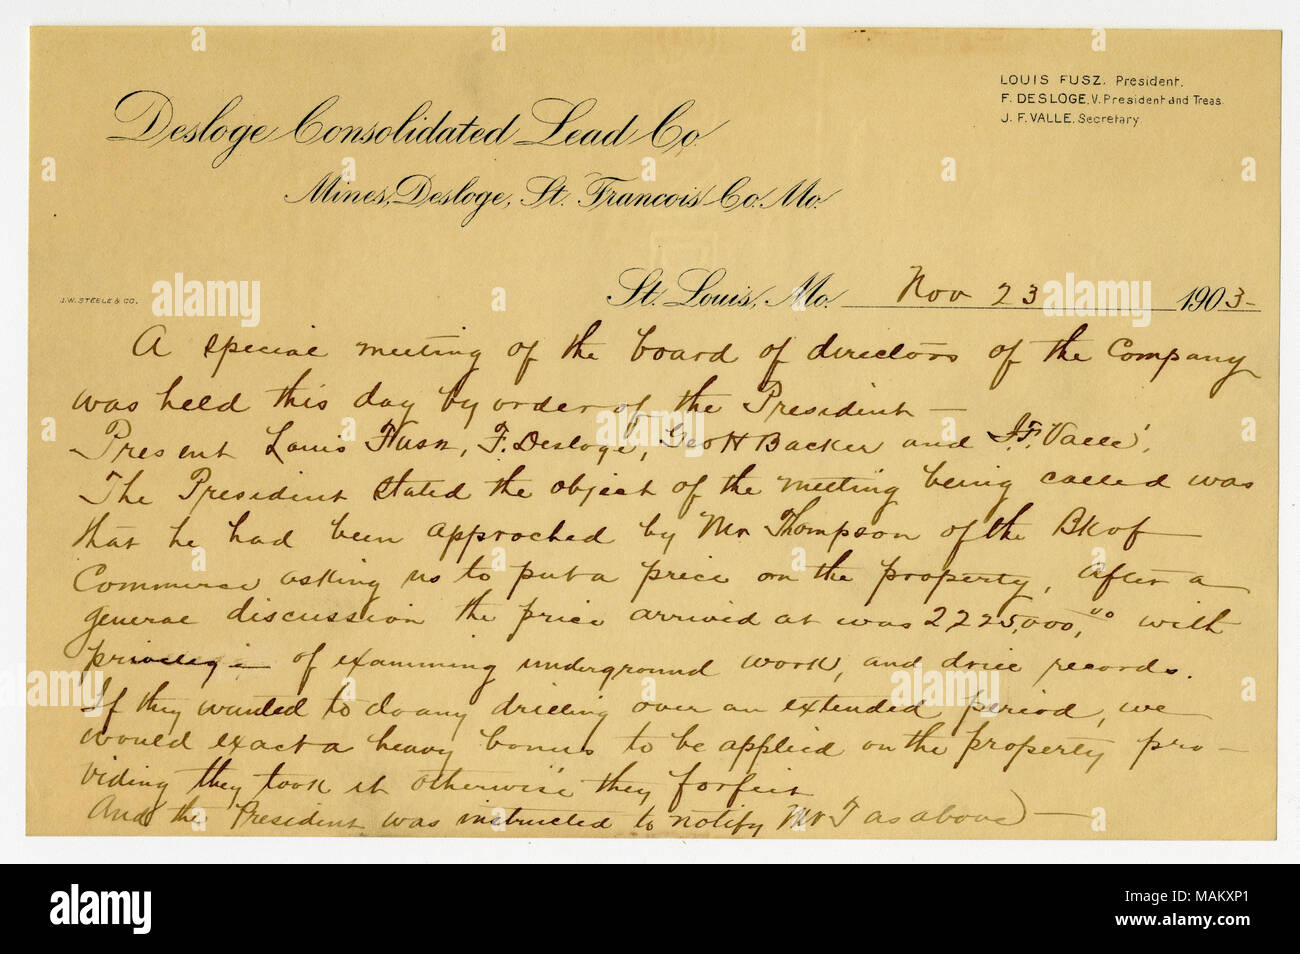 LOUIS FUSZ. President.
F. DESLOGE, V. President and Treas.
J. F. VALLE, Secretary
Desloge Consolidated Lead Co.
Mines, Desloge, St. Francois Co. Mo.
J.W. STEELE & CO.
St. Louis, Mo. Nov 23 1903-
A special meeting of the board of directors of the Company
was held this day by order of the President -
Present Louis Fusz, F. Desloge, Geo H Backer and J. F. Valle'.
The President stated the object of the meeting being called was
that he had been approched by Mr Thompson of the Bk of
Commerce asking us to put a price on the property, After a
general discussion the price arrived at was 2225,000,00 with
privilege of examining underground work, and drill records.
If they wanted to do any drilling over an extended period, we
would exact a heavy bonus to be applied on the property pro-
viding they took it otherwise they forfeit
And the President was instructed to notify Mr T as above) -
alamy
alamy
Image ID: MAKXP1
www.alamy.com